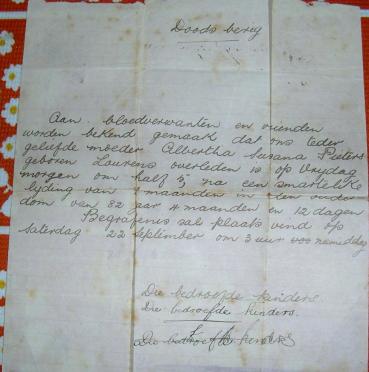 Doods berig
Aan bloedverwanten en vrienden
worden bekend gemaak dat ons teder
geliefde moeder Albertha Susana Pieters
geboren Laurens overleden is op Vrydag
morgen om half 5 na een smartelike
lyding van maanden in den ouder
dom van 82 jaar 4 maanden en 12 dagen
Begrafenis sal plaats vind op
Saterdag 22 September om 3 uur namiddag
Die bedroefde kinders
Die bedroefde kinders.
Die bedroefde kinders